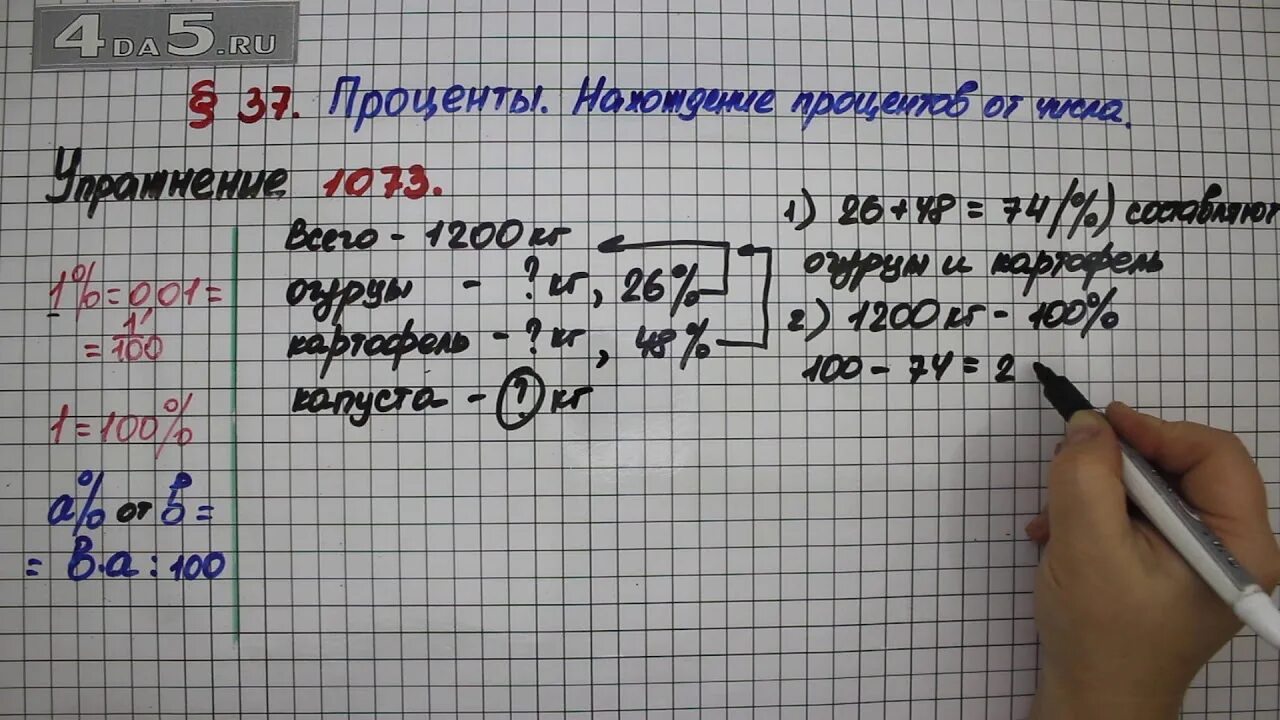 4DA5.RU
§ 37. Проценты. Нахождение процентов от числа.
Упражнение 1073.
1% = 0,01 =
= 1/100
1 = 100%
a% от b =
= b·a : 100
Всего - 1200 кг
огурцы - ? кг, 26%
картофель - ? кг, 48%
капуста - ? кг
1) 26 + 48 = 74 (%) составляют
огурцы и картофель
2) 1200 кг - 100%
100 - 74 = 2